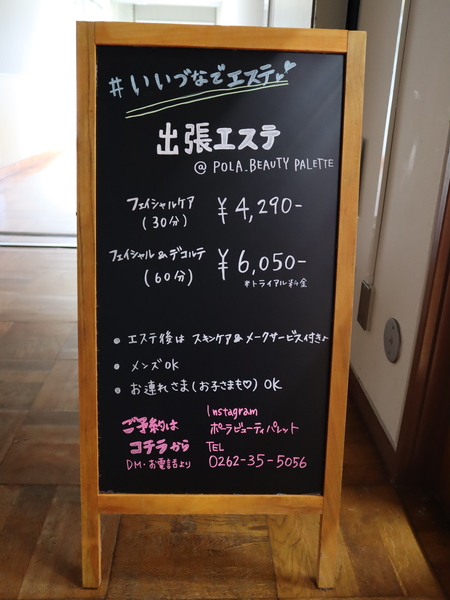 #いいづなでエステ♡
出張エステ
@ POLA_BEAUTY PALETTE
フェイシャルケア ¥4,290-
(30分)
フェイシャル&デコルテ ¥6,050-
(60分) *トライアル料金
• エステ後は スキンケア&メークサービス付き♪
• メンズOK
• お連れさま(お子さまも♡)OK
ご予約は Instagram
ポーラビューティパレット
コチラから TEL
DM・お電話より 0262-35-5056